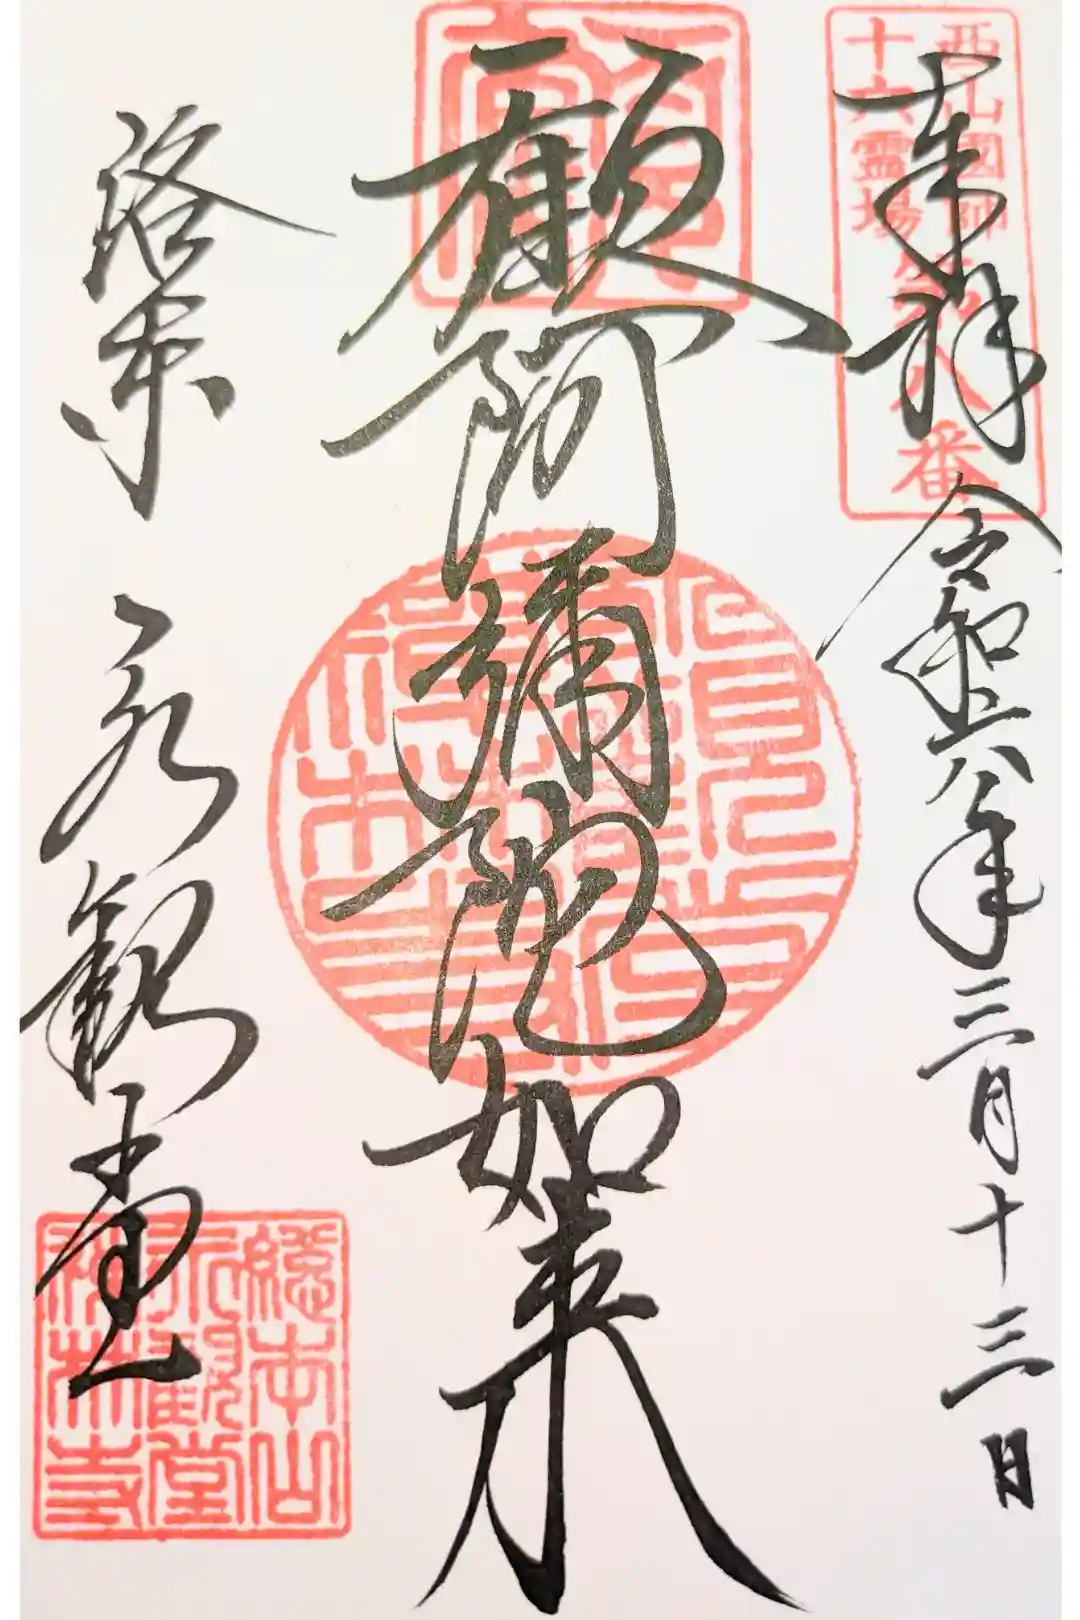 西山國師
十六霊場
第八番
奉拝 令和六年三月十三日
顧阿彌陀如来
洛東 永観堂
總本山
永觀堂
禪林寺